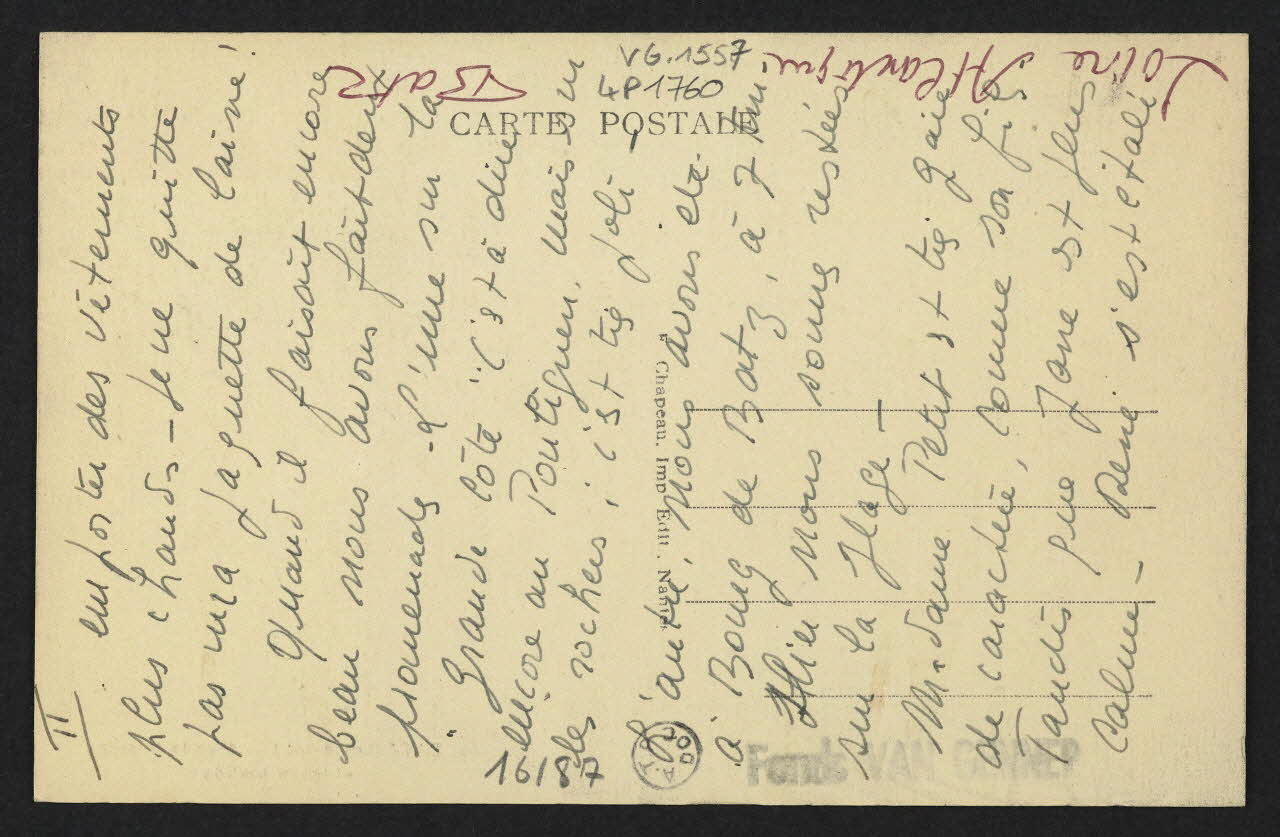 VG.1557
4P1760
Loire Atlantique
Batz
CARTE POSTALE
II
emporter des vêtements
plus chauds – je ne quitte
pas ma jaquette de laine !
Quand il faisait encore
beau nous avons fait deux
promenades – L'une sur la
"Grande Côte" c'est à dire
encore au Pouliguen, mais sur
les rochers, c'est très joli ,
L'autre, nous avons été
à Bourg de Batz, à 7 km.
Hier nous sommes restées
sur la plage –
Madame Petit est très gaie
de caractère, comme son fils
Tandis que Jane est plus
calme – René s'est étalé
Chapeau. Imp. Edit. Nantes
16187
DOC
Fonds VAN GENNEP